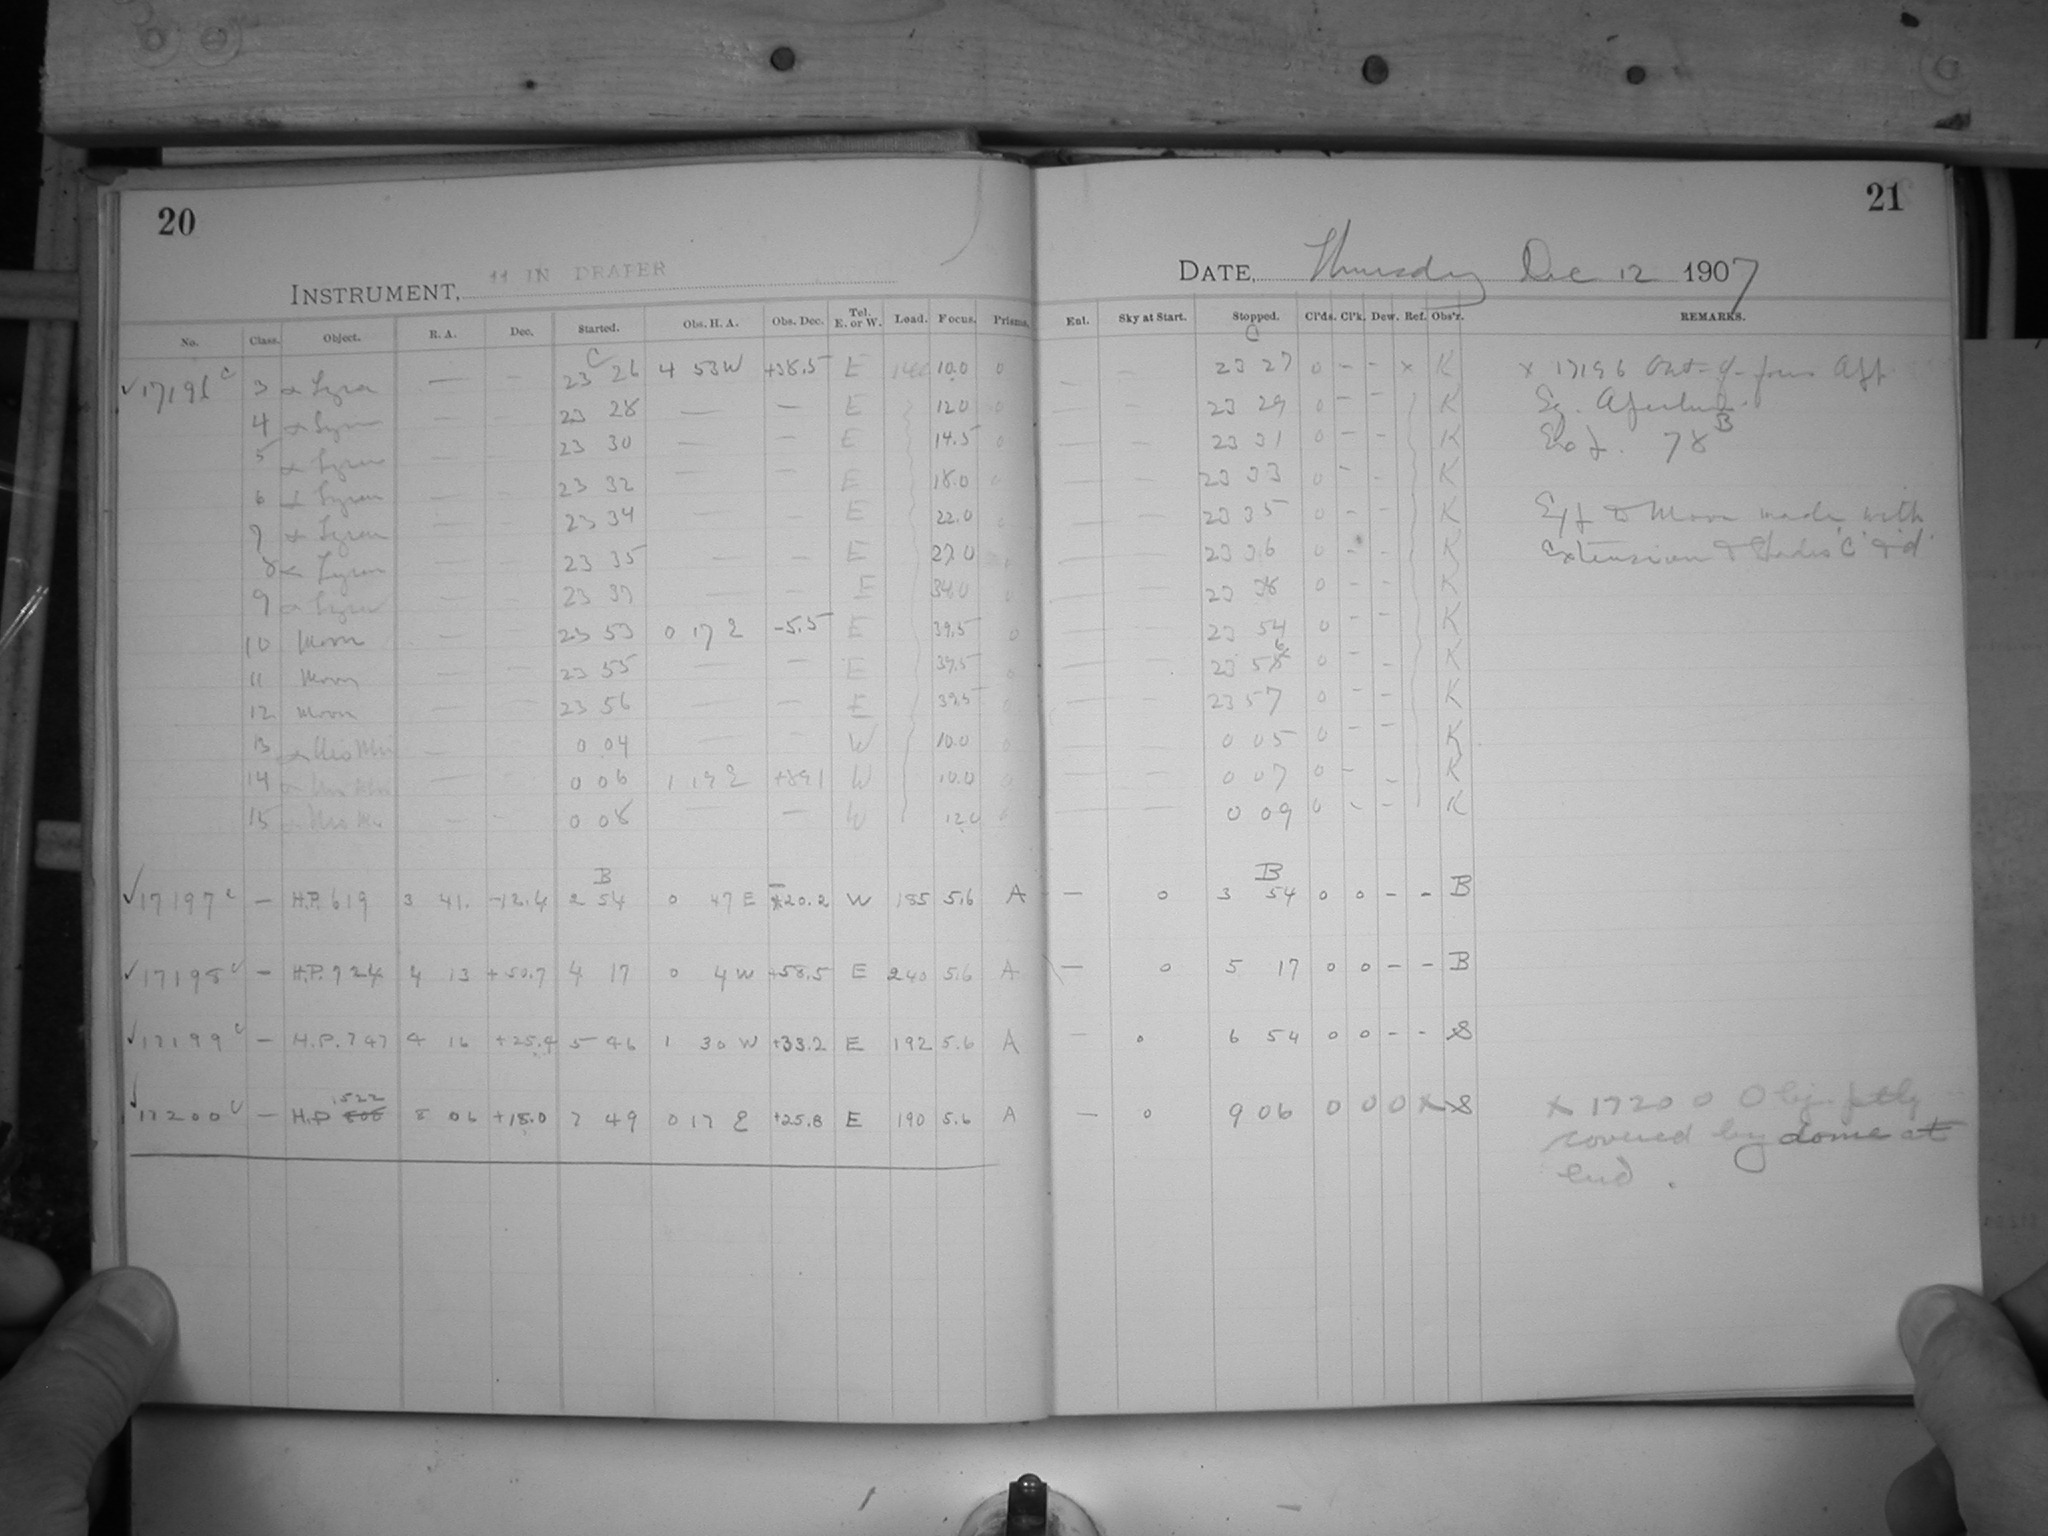 20
INSTRUMENT, 11 IN DRAPER
No. Class. Object. R. A. Dec. Started. Obs. H. A. Obs. Dec. Tel. E. or W. Load. Focus. Prisms.
C
✓17196 c 3 α Lyrae — — 23 26 4 53 W +38.5 E 10.0 0
4 α Lyrae — — 23 28 — — E 12.0 0
5 α Lyrae — — 23 30 — — E 14.5 0
6 α Lyrae — — 23 32 — — E 18.0 0
7 α Lyrae — — 23 34 — — E 22.0 0
8 α Lyrae — — 23 35 — — E 27.0 0
9 α Lyrae — — 23 37 — — E 34.0 0
10 Moon — — 23 53 0 17 E -5.5 E 39.5 0
11 Moon — — 23 55 — — E 39.5 0
12 Moon — — 23 56 — — E 39.5 0
13 α Urs Min — 0 04 — — W 10.0 0
14 α Urs Min — 0 06 1 19 E +89.1 W 10.0 0
15 α Urs Min — - 0 08 — — W 12.0 0
B
✓17197 c — H.P. 619 3 41. -12.4 2 54 0 47 E -20.2 W 185 5.6 A
✓17198 c — H.P. 724 4 13 +50.7 4 17 0 4 W +58.5 E 240 5.6 A
✓17199 c — H.P. 747 4 16 +25.4 5 46 1 30 W +33.2 E 192 5.6 A
1522
✓17200 c — H.P. 808 8 06 +18.0 7 49 0 17 E +25.8 E 190 5.6 A
21
DATE, Thursday Dec 12 1907
Enl. Sky at Start. Stopped. Cl'ds. Cl'k. Dew. Ref. Obs'r. REMARKS.
C
— — 23 27 0 - - x K x 17196 Out-of-focus
— — 23 29 0 - - K
— — 23 31 0 - - K 78 B
— — 23 33 0 - - K
— — 23 35 0 - - K Moon made with
— — 23 36 0 - - K Extension & Shades 'C' & 'd'
— — 23 38 0 - - K
— — 23 54 0 - - K
— — 23 56 0 - - K
— — 23 57 0 - - K
— — 0 05 0 - - K
— — 0 07 0 - - K
— — 0 09 0 - - K
B
— 0 3 54 0 0 - - B
— 0 5 17 0 0 - - B
— 0 6 54 0 0 - - S
— 0 9 06 0 0 0 x S x 17200 Obj. ptly
covered by dome at
end.